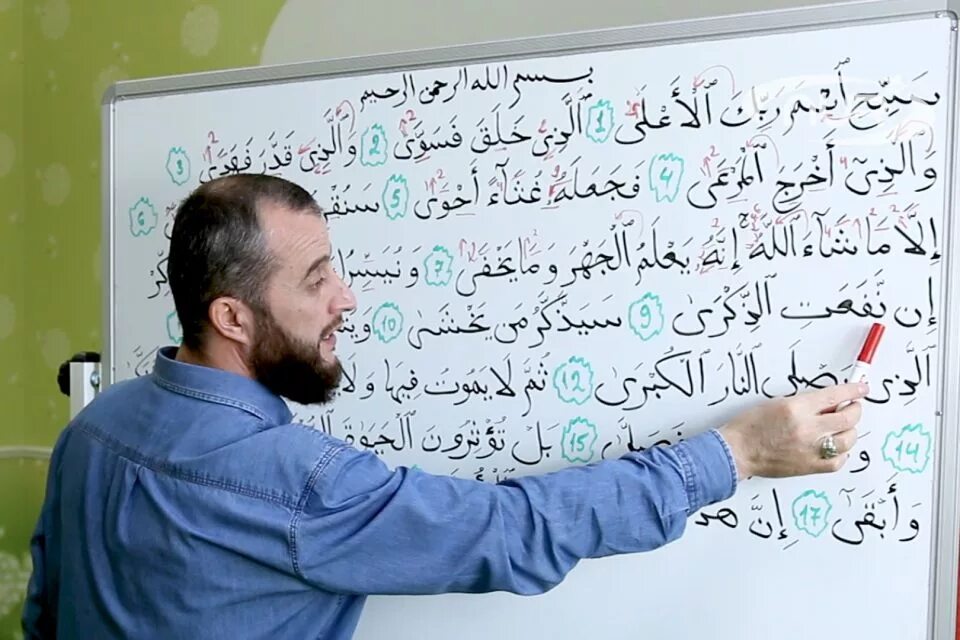 بسم الله الرحمن الرحيم
سَبِّحِ ٱسْمَ رَبِّكَ ٱلْأَعْلَى 1 ٱلَّذِى خَلَقَ فَسَوَّىٰ 2 وَٱلَّذِى قَدَّرَ فَهَدَىٰ 3
وَٱلَّذِىٓ أَخْرَجَ ٱلْمَرْعَىٰ 4 فَجَعَلَهُۥ غُثَآءً أَحْوَىٰ 5 سَنُقْرِ 6
إِلَّا مَا شَآءَ ٱللَّهُ إِنَّهُۥ يَعْلَمُ ٱلْجَهْرَ وَمَا يَخْفَىٰ 7 وَنُيَسِّرُ
إِن نَّفَعَتِ ٱلذِّكْرَىٰ 9 سَيَذَّكَّرُ مَن يَخْشَىٰ 10
ٱلَّذِى يَصْلَى ٱلنَّارَ ٱلْكُبْرَىٰ 12 ثُمَّ لَا يَمُوتُ فِيهَا وَلَا
14 فَصَلَّىٰ 15 بَلْ تُؤْثِرُونَ ٱلْحَيَوٰةَ
وَأَبْقَىٰٓ 17 إِنَّ هَٰذَ